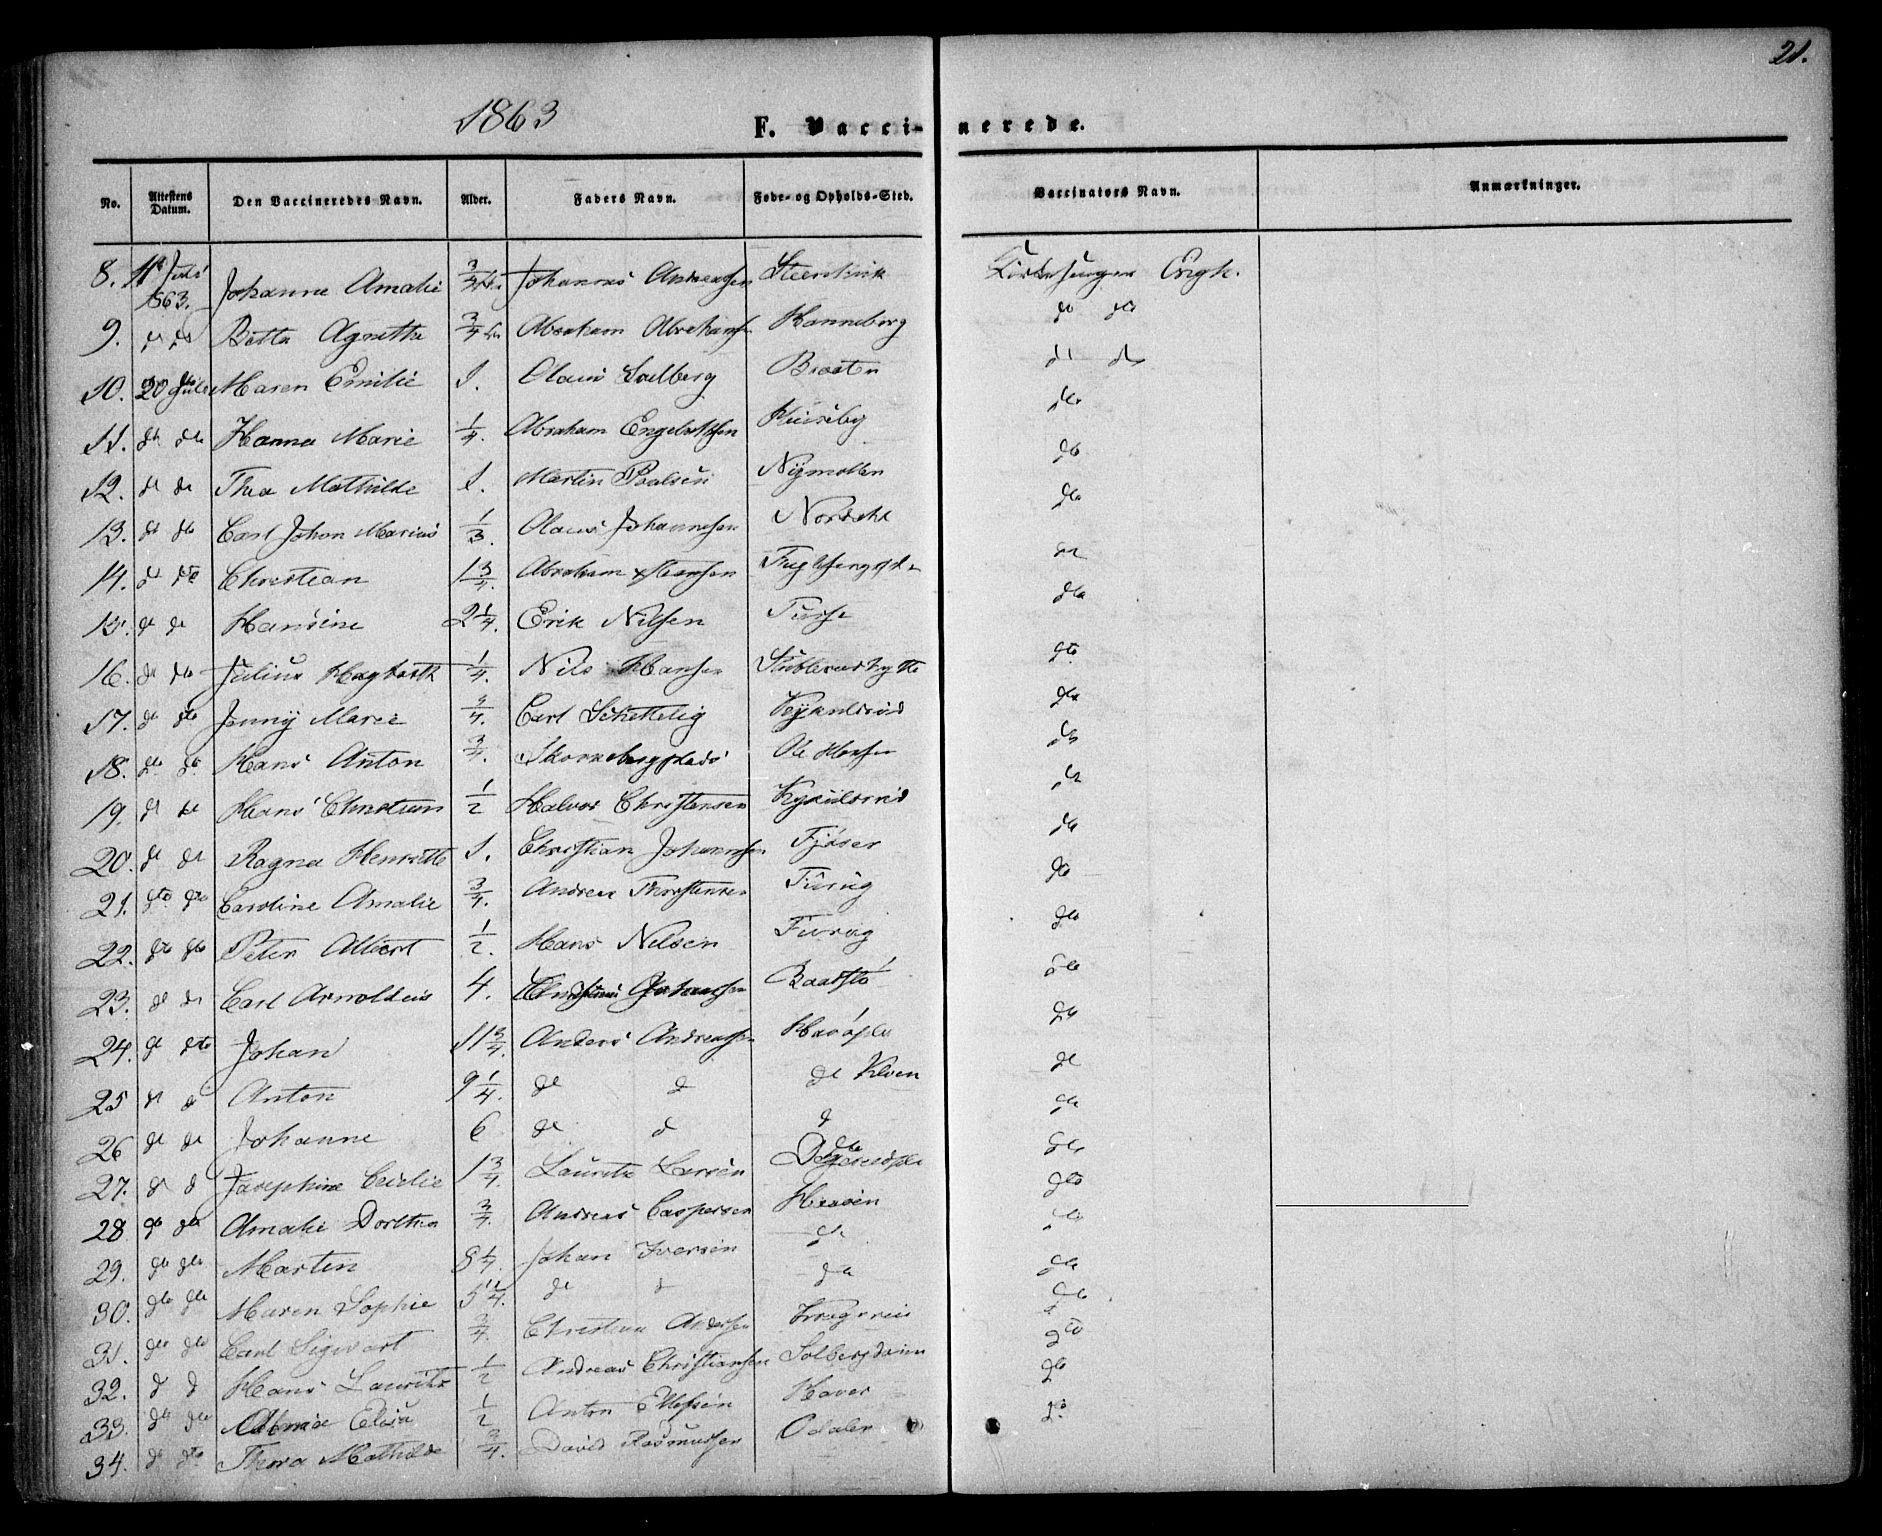 21.
1863
F. Vaccinerede.
No. Attestens Datum. Den Vaccineredes Navn. Alder. Faders Navn. Føde- og Opholds-Sted. Vaccinators Navn. Anmærkninger.
8. 11te Juli 1863. Johanne Amalie 3/4 Johannes Andreassen Steenkirk Kirkesanger Engh.
9. do do Agnethe 3/4 Abraham Abrahamsen Kanneborg do do
10. 20 Juli Maren Emilie 1. Olaus Solberg Braaten do do
11. do do Hanna Marie 1/4. Abraham Engebretsen Huseby do
12. do do Thea Mathilde 1. Martin Paalsen Nymollen do
13. do do Carl Johan Marius 1/3. Olaus Johannesen Nordahl do
14. do do Christian 1 3/4. Abraham Hansen do
15. do do Hansine 2 1/4. Erik Nilsen do
16. do do Julius Hagbarth 1/4. Nils Hansen do
17. do do Jenny Marie 3/4. Carl Schettelig Kykulsrød do
18. do do Hans Anton 3/4. Skornebergplads Ole Hansen do
19. do do Hans Christian 1/2 Halvor Christensen Kykulsrød do
20. do do Ragna Henriette 1. Christian Johannsen Fjøser do
21. dto do Caroline Amalie 3/4. Andrea Thorstensen Furug do
22. do do Peter Albert 1/2. Hans Nilsen Furug do
23. do do Carl Arnoldius 4. Johansen Baastø do
24. do dto Johan 11 3/4. Anders Andreassen do
25 do d Anton 9 1/4. do d do Kloen do
26 do do Johanne 6 do d d do
27. do d Josephine Cecilie 1 3/4. Lauritz Larsen do
28 do do Amalie Dorthea 3/4. Andreas Caspersen Haaøen do
29. do do Martin 8 1/4. Johan Iversen do do
30. do do Maren Sophie 5 1/4. do d do do
31. do do Carl Sigvart 3/4. Christian Andersen do
32. d d Hans Lauritz 1/2 Andreas Christiansen do
33. do do 1/2 Anton Ellefsen Haver do
34. do do Thora Mathilde 3/4. David Rasmussen Odaler do